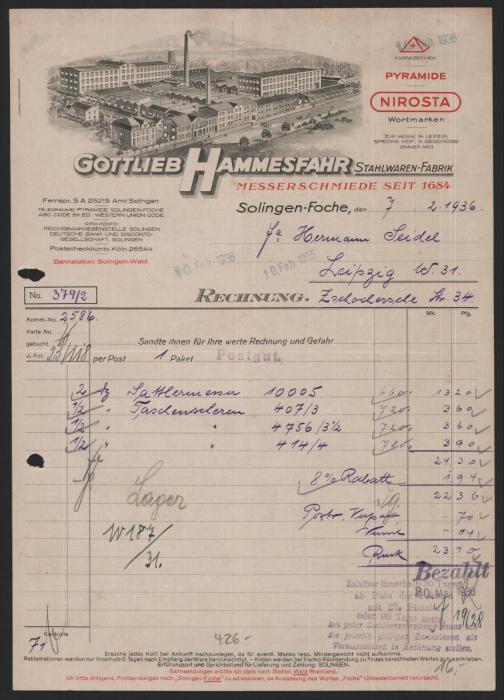 10. Feb. 1936
FABRIKZEICHEN
PYRAMIDE
NIROSTA
Wortmarken
ZUR MESSE IN LEIPZIG:
SPECKS HOF, 3. GESCHOSS
GOTTLIEB HAMMESFAHR STAHLWAREN-FABRIK
MESSERSCHMIEDE SEIT 1684
Fernspr. S.A 25215 Amt Solingen
TELEGRAMME: PYRAMIDE SOLINGEN-FOCHE
ABC CODE 5th ED. WESTERN UNION CODE
GIRO-KONTO:
REICHSBANKNEBENSTELLE SOLINGEN
DEUTSCHE BANK UND DISCONTO-
GESELLSCHAFT, SOLINGEN
Postscheckkonto Köln 26544
Bahnstation: Solingen-Wald
Solingen-Foche, den 7. 2. 1936.
Fa Hermann Seidel
Leipzig W. 31.
10. Feb. 1936 10. Feb. 1936
No. 379/2
RECHNUNG. Zschochersche Str 34
Mk. Pfg.
Komm.-No. 2586.
Karte No.
gebucht
J.-Fol.
Sandte Ihnen für Ihre werte Rechnung und Gefahr
per Post 1 Paket Postgut
2 Dz Sattlermesser 10005 660 13 20
1/2 " Taschenscheren 407/3 720 3 60
1/2 " " 4756/3½ 720 3 60
1/2 " " 414/4 780 3 90
24 30
8% Rabatt 1 94
22 36
Porto. Verpack. -70
-04
Rmk 23 10
Lager
W187/31.
Bezahlt
Zahlbar innerhalb 30 Tagen
ab Dato der
mit 2% Skonto
oder 90 Tage netto
Kontrolle
71
426-
16.
Ersuche jedes Kolli bei Ankunft nachzuwiegen, da für eventl. Manko resp. Mindergewicht nicht aufkomme.
Reklamationen werden nur innerhalb 8 Tagen nach Empfang der Ware berücksichtigt. — Kisten werden bei franko Rücksendung zu ⅔ des berechneten Wertes gutgeschrieben.
Erfüllungsort und Gerichtsstand für Lieferung und Zahlung: SOLINGEN.
Bahnsendungen erbitte ich stets nach Station Wald Rheinland.
Ich bitte dringend, Postsendungen nach „Solingen-Foche“ zu adressieren, da Auslassung des Wortes „Foche“ Unbestellbarkeit verursacht.